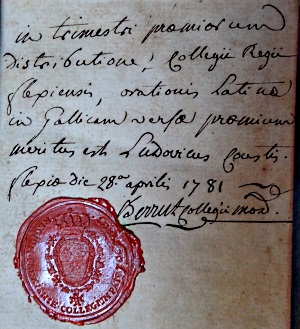 in trimestri præmiorum
distributione, Collegii Regii
flexiensis, orationis Latinæ
in Gallicam versæ præmium
meritus est Ludovicus
flexiæ die 28.a aprilis 1781
collegii mod.
COLLEGIUM